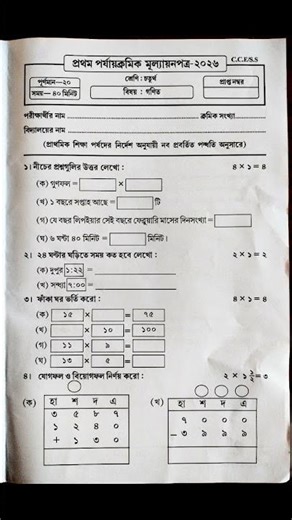 প্রথম পর্যায়ক্রমিক মূল্যায়নপত্র-২০২৬ C.C.E/S.S
পূর্ণমান—২০ শ্রেণি : চতুর্থ প্রাপ্ত নম্বর
সময়— ৪০ মিনিট বিষয় : গণিত
পরীক্ষার্থীর নাম ক্রমিক সংখ্যা
বিদ্যালয়ের নাম
(প্রাথমিক শিক্ষা পর্ষদের নির্দেশ অনুযায়ী নব প্রবর্তিত পদ্ধতি অনুসারে)
১। নীচের প্রশ্নগুলির উত্তর লেখো : ৪ × ১ = ৪
(ক) গুণফল = ×
(খ) ১ বছরে সপ্তাহ আছে = টি
(গ) যে বছর লিপইয়ার সেই বছরে ফেব্রুয়ারি মাসের দিনসংখ্যা =
(ঘ) ৬ ঘন্টা ৪০ মিনিট = মিনিট।
২। ২৪ ঘন্টার ঘড়িতে সময় কত হবে লেখো : ২ × ১ = ২
(ক) দুপুর ১:২২ =
(খ) সন্ধ্যা ৭:০০ =
৩। ফাঁকা ঘর ভর্তি করো : ৪ × ১ = ৪
(ক) ১৫ × = ৭৫
(খ) × ১০ = ১০০
(গ) ১১ × ৯ =
(ঘ) ১৩ × ৫ =
৪। যোগফল ও বিয়োগফল নির্ণয় করো : ২ × ১ ১/২ = ৩
(ক) হা শ দ এ
৩ ৫ ৮ ৭
১ ২ ৪ ০
+ ১ ৩ ০
(খ) হা শ দ এ
৭ ০ ০ ০
– ৩ ৯ ৯ ৯